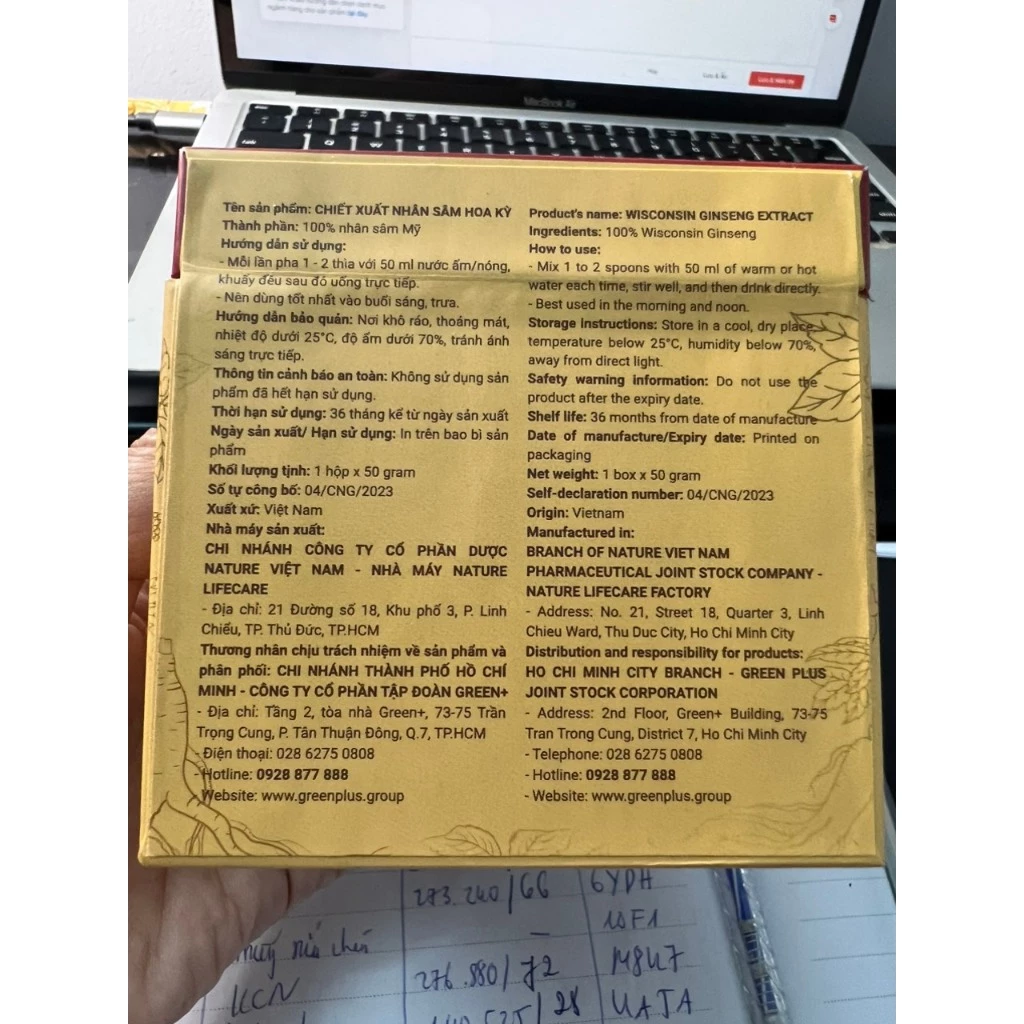 tại đây
Hủy
Lưu & Ẩn
MacBook Air
Tên sản phẩm: CHIẾT XUẤT NHÂN SÂM HOA KỲ
Thành phần: 100% nhân sâm Mỹ
Hướng dẫn sử dụng:
- Mỗi lần pha 1 - 2 thìa với 50 ml nước ấm/nóng,
khuấy đều sau đó uống trực tiếp.
- Nên dùng tốt nhất vào buổi sáng, trưa.
Hướng dẫn bảo quản: Nơi khô ráo, thoáng mát,
nhiệt độ dưới 25°C, độ ẩm dưới 70%, tránh ánh
sáng trực tiếp.
Thông tin cảnh báo an toàn: Không sử dụng sản
phẩm đã hết hạn sử dụng.
Thời hạn sử dụng: 36 tháng kể từ ngày sản xuất
Ngày sản xuất/ Hạn sử dụng: In trên bao bì sản
phẩm
Khối lượng tịnh: 1 hộp x 50 gram
Số tự công bố: 04/CNG/2023
Xuất xứ: Việt Nam
Nhà máy sản xuất:
CHI NHÁNH CÔNG TY CỔ PHẦN DƯỢC
NATURE VIỆT NAM - NHÀ MÁY NATURE
LIFECARE
- Địa chỉ: 21 Đường số 18, Khu phố 3, P. Linh
Chiểu, TP. Thủ Đức, TP.HCM
Thương nhân chịu trách nhiệm về sản phẩm và
phân phối: CHI NHÁNH THÀNH PHỐ HỒ CHÍ
MINH - CÔNG TY CỔ PHẦN TẬP ĐOÀN GREEN+
- Địa chỉ: Tầng 2, tòa nhà Green+, 73-75 Trần
Trọng Cung, P. Tân Thuận Đông, Q.7, TP.HCM
- Điện thoại: 028 6275 0808
- Hotline: 0928 877 888
- Website: www.greenplus.group
Product's name: WISCONSIN GINSENG EXTRACT
Ingredients: 100% Wisconsin Ginseng
How to use:
- Mix 1 to 2 spoons with 50 ml of warm or hot
water each time, stir well, and then drink directly.
- Best used in the morning and noon.
Storage instructions: Store in a cool, dry place,
temperature below 25°C, humidity below 70%,
away from direct light.
Safety warning information: Do not use the
product after the expiry date.
Shelf life: 36 months from date of manufacture
Date of manufacture/Expiry date: Printed on
packaging
Net weight: 1 box x 50 gram
Self-declaration number: 04/CNG/2023
Origin: Vietnam
Manufactured in:
BRANCH OF NATURE VIET NAM
PHARMACEUTICAL JOINT STOCK COMPANY -
NATURE LIFECARE FACTORY
- Address: No. 21, Street 18, Quarter 3, Linh
Chieu Ward, Thu Duc City, Ho Chi Minh City
Distribution and responsibility for products:
HO CHI MINH CITY BRANCH - GREEN PLUS
JOINT STOCK CORPORATION
- Address: 2nd Floor, Green+ Building, 73-75
Tran Trong Cung, District 7, Ho Chi Minh City
- Telephone: 028 6275 0808
- Hotline: 0928 877 888
- Website: www.greenplus.group
273.240/66 6YDH
10F1
KCN 276.880/72 M8U7
28 UAJA